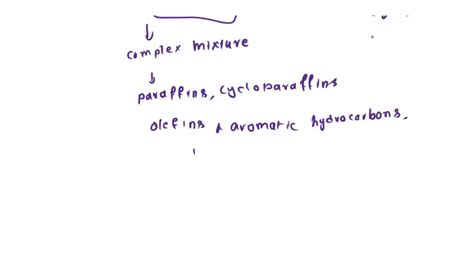 complex mixture
paraffins, cycloparaffins
olefins & aromatic hydrocarbons.